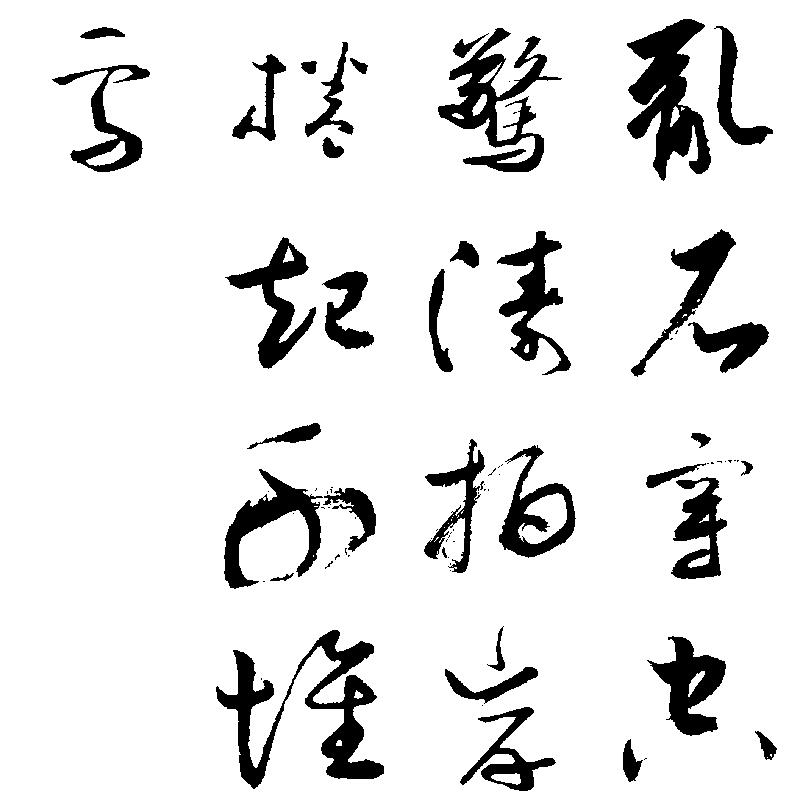 亂石穿空
驚濤拍岸
捲起千堆
雪